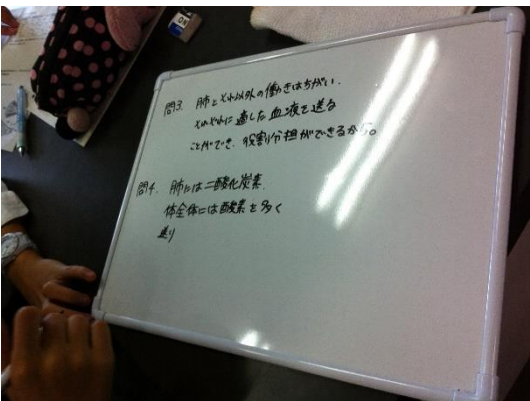 問3. 肺とそれ以外の働きはちがい、
それぞれに適した血液を送る
ことができ、役割分担ができるから。
問4. 肺には二酸化炭素、
体全体には酸素を多く
送り